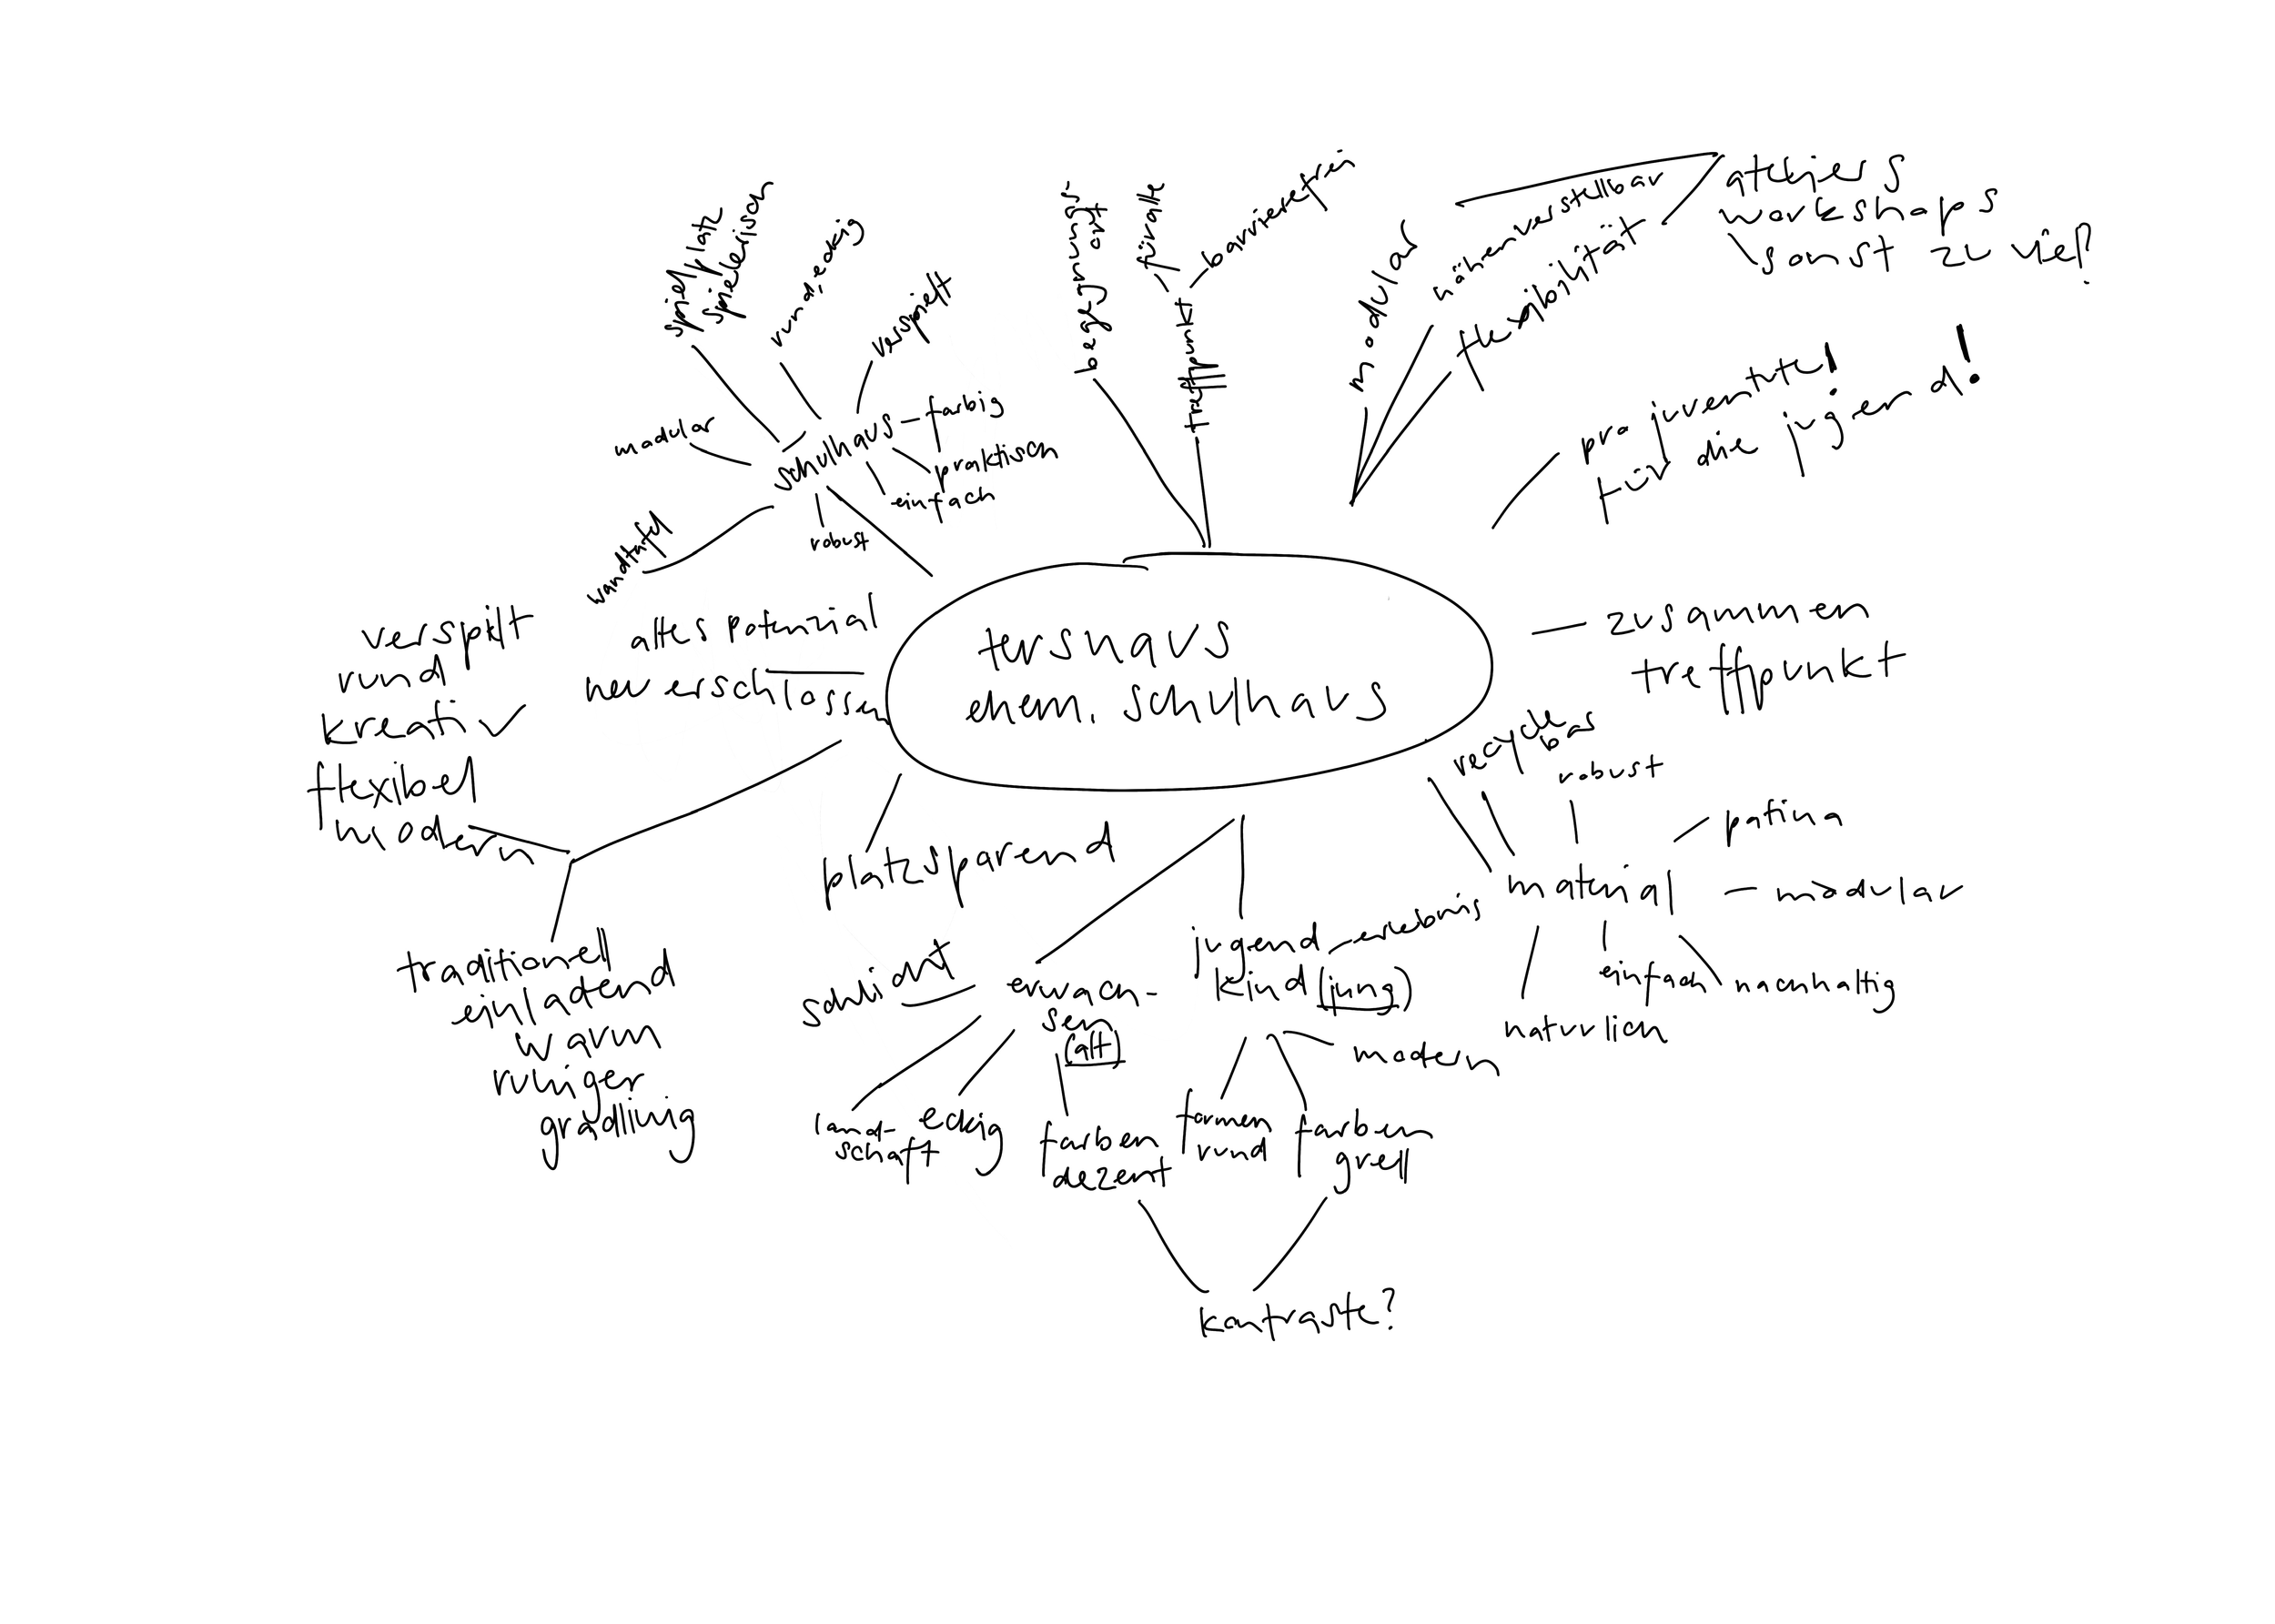 spielplatz
spielerisch
rund, eckig
verspielt
modular
schulhaus – farbig
praktisch
einfach
robust
wandtafel
begegnungs
ort
für alle
barrierefrei
treffpunkt
modular
höhenverstellbar
flexibilität
ateliers
workshops
sonst zu viel?
pro juventute!
für die jugend!
zusammen
treffpunkt
tersnaus
ehem. schulhaus
altes potenzial
neu erschlossen
verspielt
rund
kreativ
flexibel
modern
traditionell
einladend
warm
ruhiger
gradlinig
platzsparend
schlicht
erwach-
sen
(alt)
land-
schaft
eckig
farben
dezent
jugend – erlebnis
kind (jung)
modern
formen
rund
farben
grell
kontraste?
recycle
bar
robust
patina
material
– modular
einfach
nachhaltig
naturlich